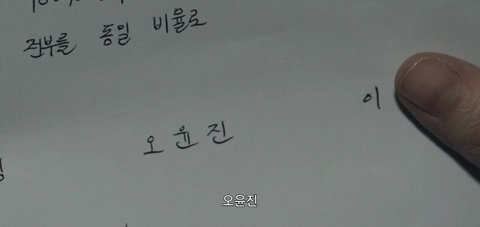 전부를 동일 비율로
이
오윤진
오윤진